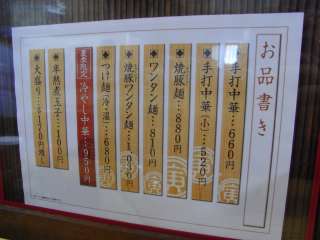 お品書き
手打中華…660円
手打中華(小)…520円
焼豚麺…880円
ワンタン麺…810円
焼豚ワンタン麺…1,030円
つけ麺(冷・温)…680円
冷やし中華…950円
半熟煮玉子…100円
大盛り…170円増